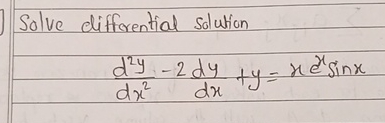 Solve differential solution
d²y/dx² - 2 dy/dx + y = x eˣ sinx